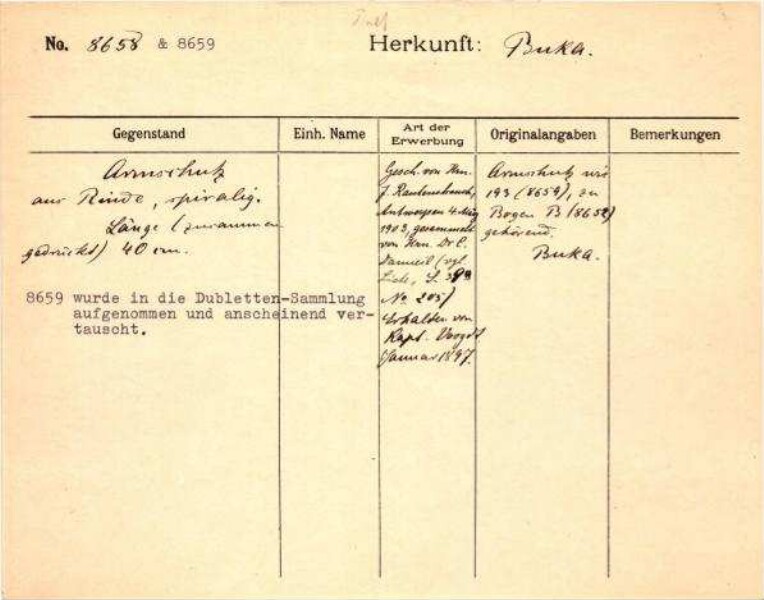 No. 8658 & 8659
Herkunft: Buka.
Gegenstand
Einh. Name
Art der
Erwerbung
Originalangaben
Bemerkungen
Armschutz
aus Rinde, spiralig.
Länge (zusammen
gedrückt) 40 cm.
8659 wurde in die Dubletten-Sammlung
aufgenommen und anscheinend ver-
tauscht.
Gesch. von Hrn.
J. Rautenstrauch,
Antwerpen 4. März
1903, gesammelt
von Hrn. Dr C.
Danneil (vgl.
Liste, S.
No 205)
Erhalten von
Kapt. Voogdt
Januar 1897.
Armschutz wie
193 (8659), zu
Bogen B (8652)
gehörend.
Buka.